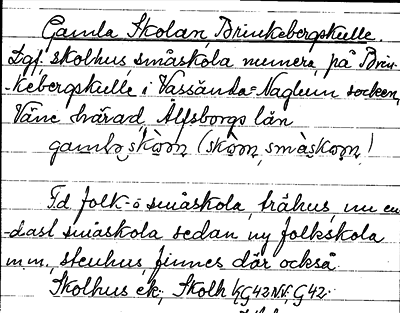 Gamla Skolan, Brinkebergskulle.
skolhus, småskola numera, på Brin-
kebergskulle i Vassända-Naglum socken,
Väne härad, Älfsborgs län
F.d. folk- o småskola, trähus, nu en-
dast småskola sedan ny folkskola
m.m., stenhus, finnes där också.
Skolhus ek.; Skolh